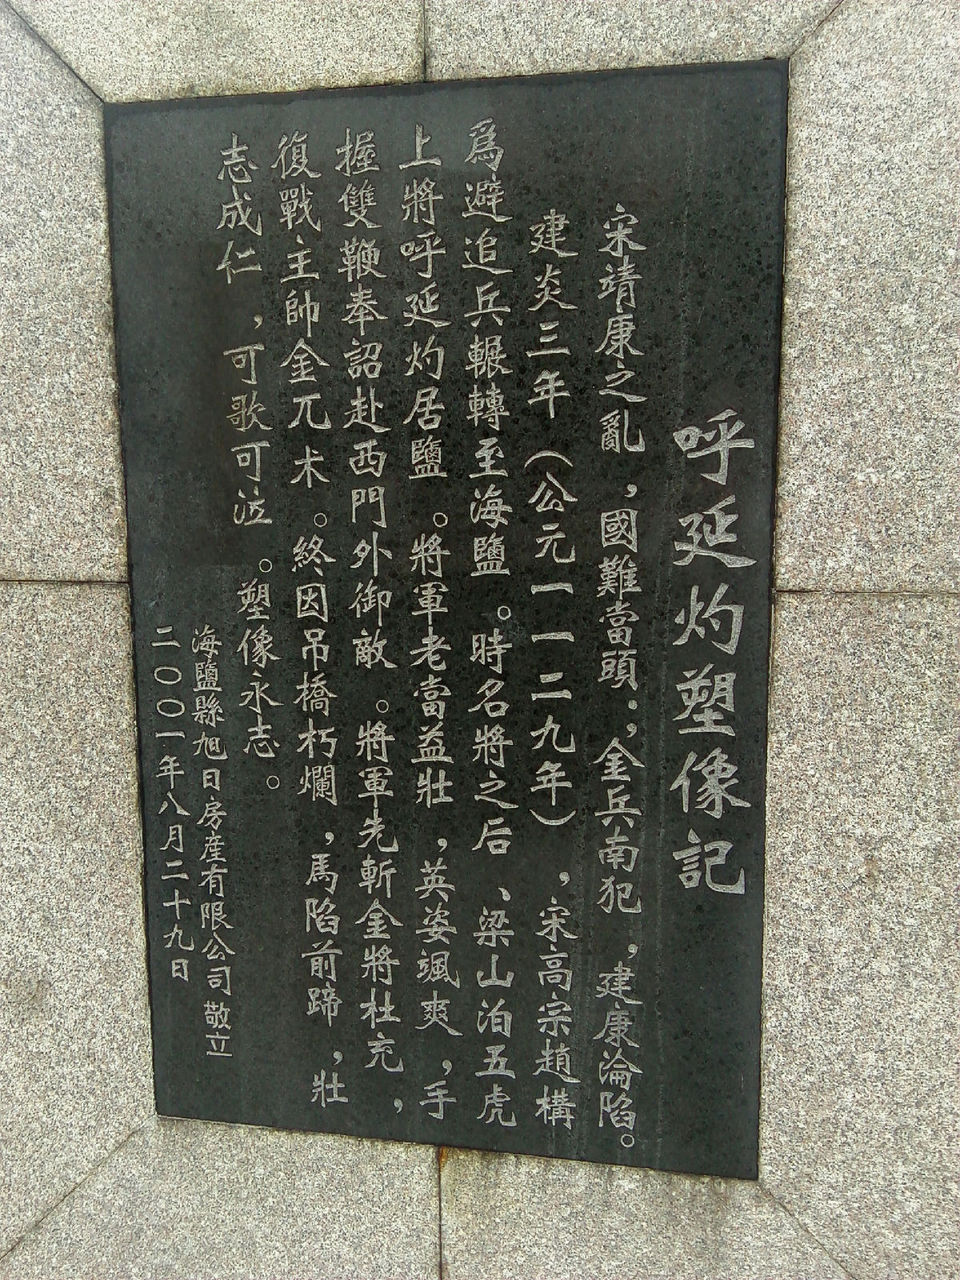 呼延灼塑像記
宋靖康之亂，國難當頭；金兵南犯，建康淪陷。
建炎三年（公元一一二九年），宋高宗趙構
爲避追兵輾轉至海鹽。時名將之后、梁山泊五虎
上將呼延灼居鹽。將軍老當益壯，英姿颯爽，手
握雙鞭奉詔赴西門外御敵。將軍先斬金將杜充，
復戰主帥金兀术。終因吊橋朽爛，馬陷前蹄，壯
志成仁，可歌可泣。塑像永志。
海鹽縣旭日房産有限公司敬立
二〇〇一年八月二十九日